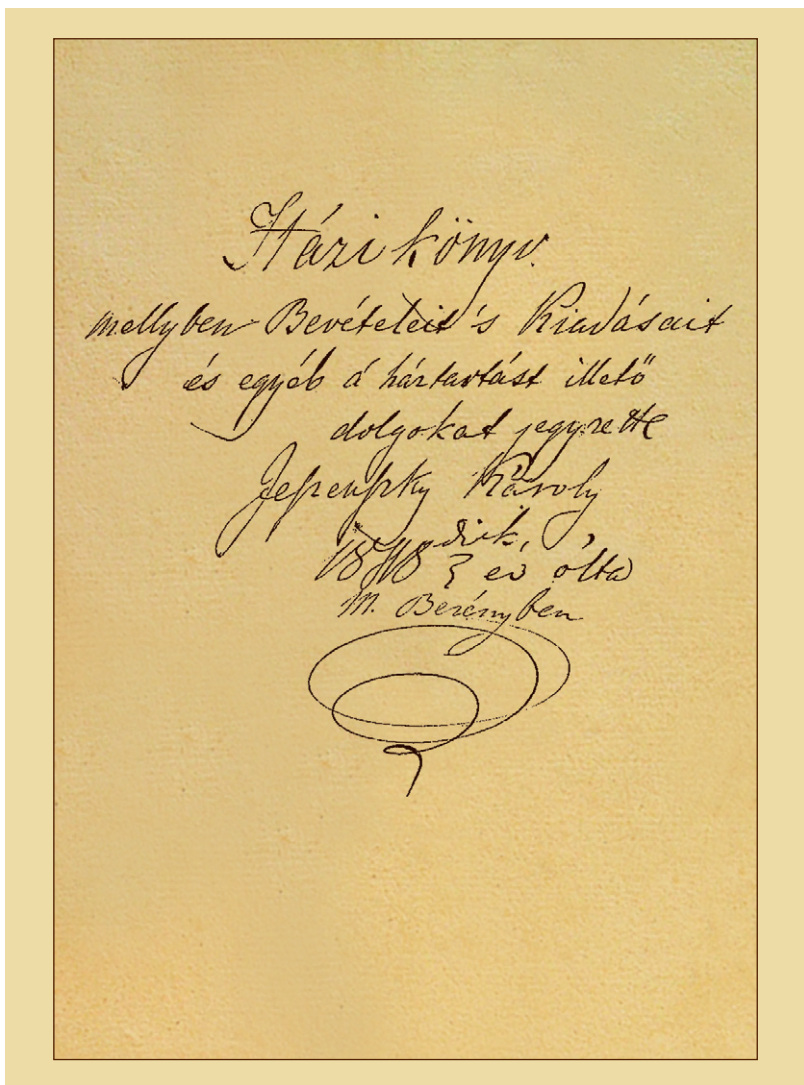 Házi könyv.
mellyben Bevételeit 's Kiadásait
és egyéb á háztartást illető
dolgokat jegyzette
Jeszenszky Károly
1848dik év ólta
M. Berényben